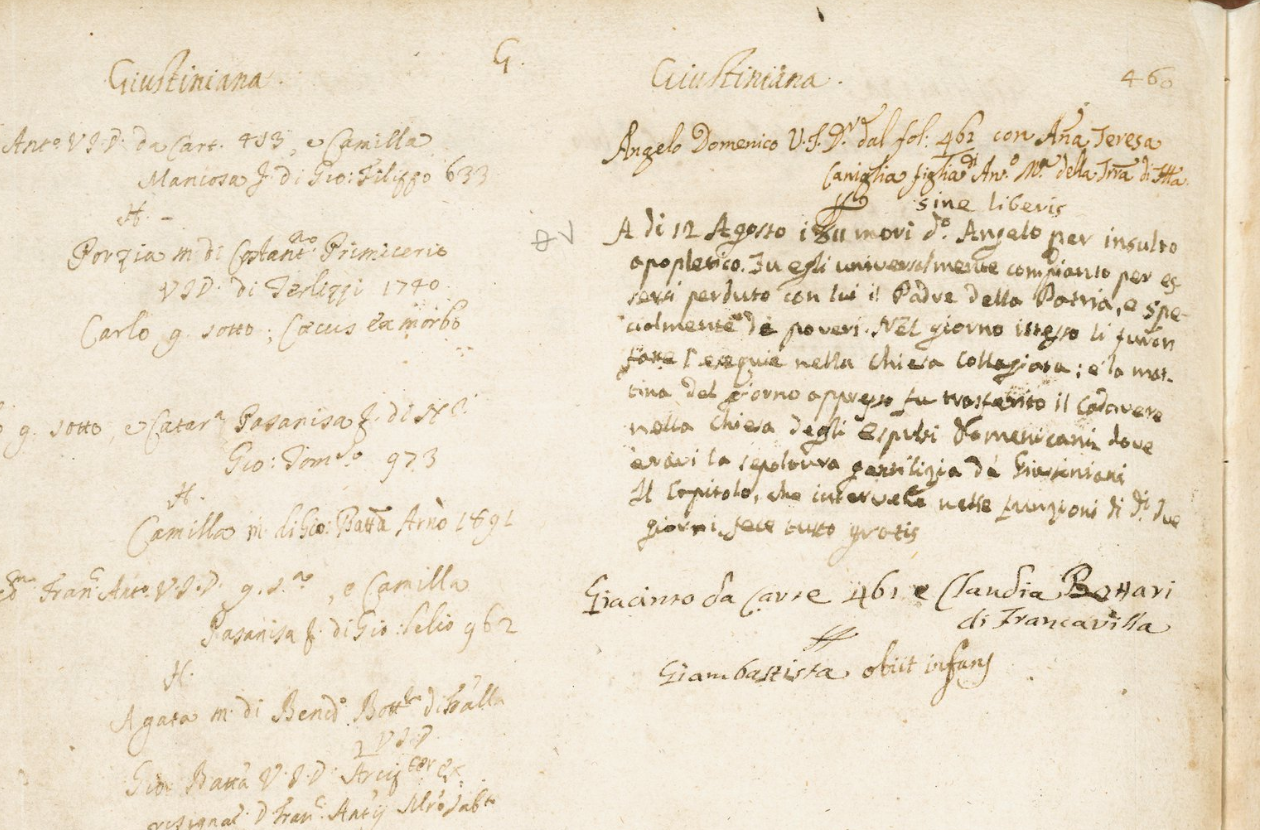 Giustiniana.
G.
Ant.º V.J.D. da Cart. 413, e Camilla
Maniosa f. di Gio: Filippo 633
H. -
Porzia m. di Costant.no Primicerio
V.J.D. di Terlizzi 1740
Carlo g. sotto; Cæcus ex morbo
g. sotto, e Catar.a Pasanisa f. di
Gio: Tom.so 973
H.
Camilla m. di Gio: Batta Arnò 1891
Fran.c Ant.º V.J.D. g. s.to, e Camilla
Pasanisa f. di Gio: Lelio 962
H.
Agata m. di Bened.º
V.J.D.
Gio: Batta V.J.D.
Giustiniana.
460
Angelo Domenico V.J.D.r dal fol: 461 con Anna Teresa
Caniglia figlia di An.º M.a della Trrà di
sine liberis
A di 12 Agosto 1811 morì d.º Angelo per insulto
apopletico. Fu egli universalmente compianto per es
sersi perduto con lui il Padre della Patria, e spe-
cialmente de' poveri. Nel giorno istesso li furon
fatte l'esequie nella Chiesa Collegiata; e la mat-
tina del giorno appresso fu trasferito il Cadavere
nella Chiesa degli espulsi Domenicani, dove
eravi la sepoltura gentilizia de' Giustiniani
Il Capitolo, che intervenne nelle funzioni di d.i due
giorni, fece tutto gratis
Giacinto da Carte 461 e Claudia Bottari
di Francavilla
Giambattista obiit infans